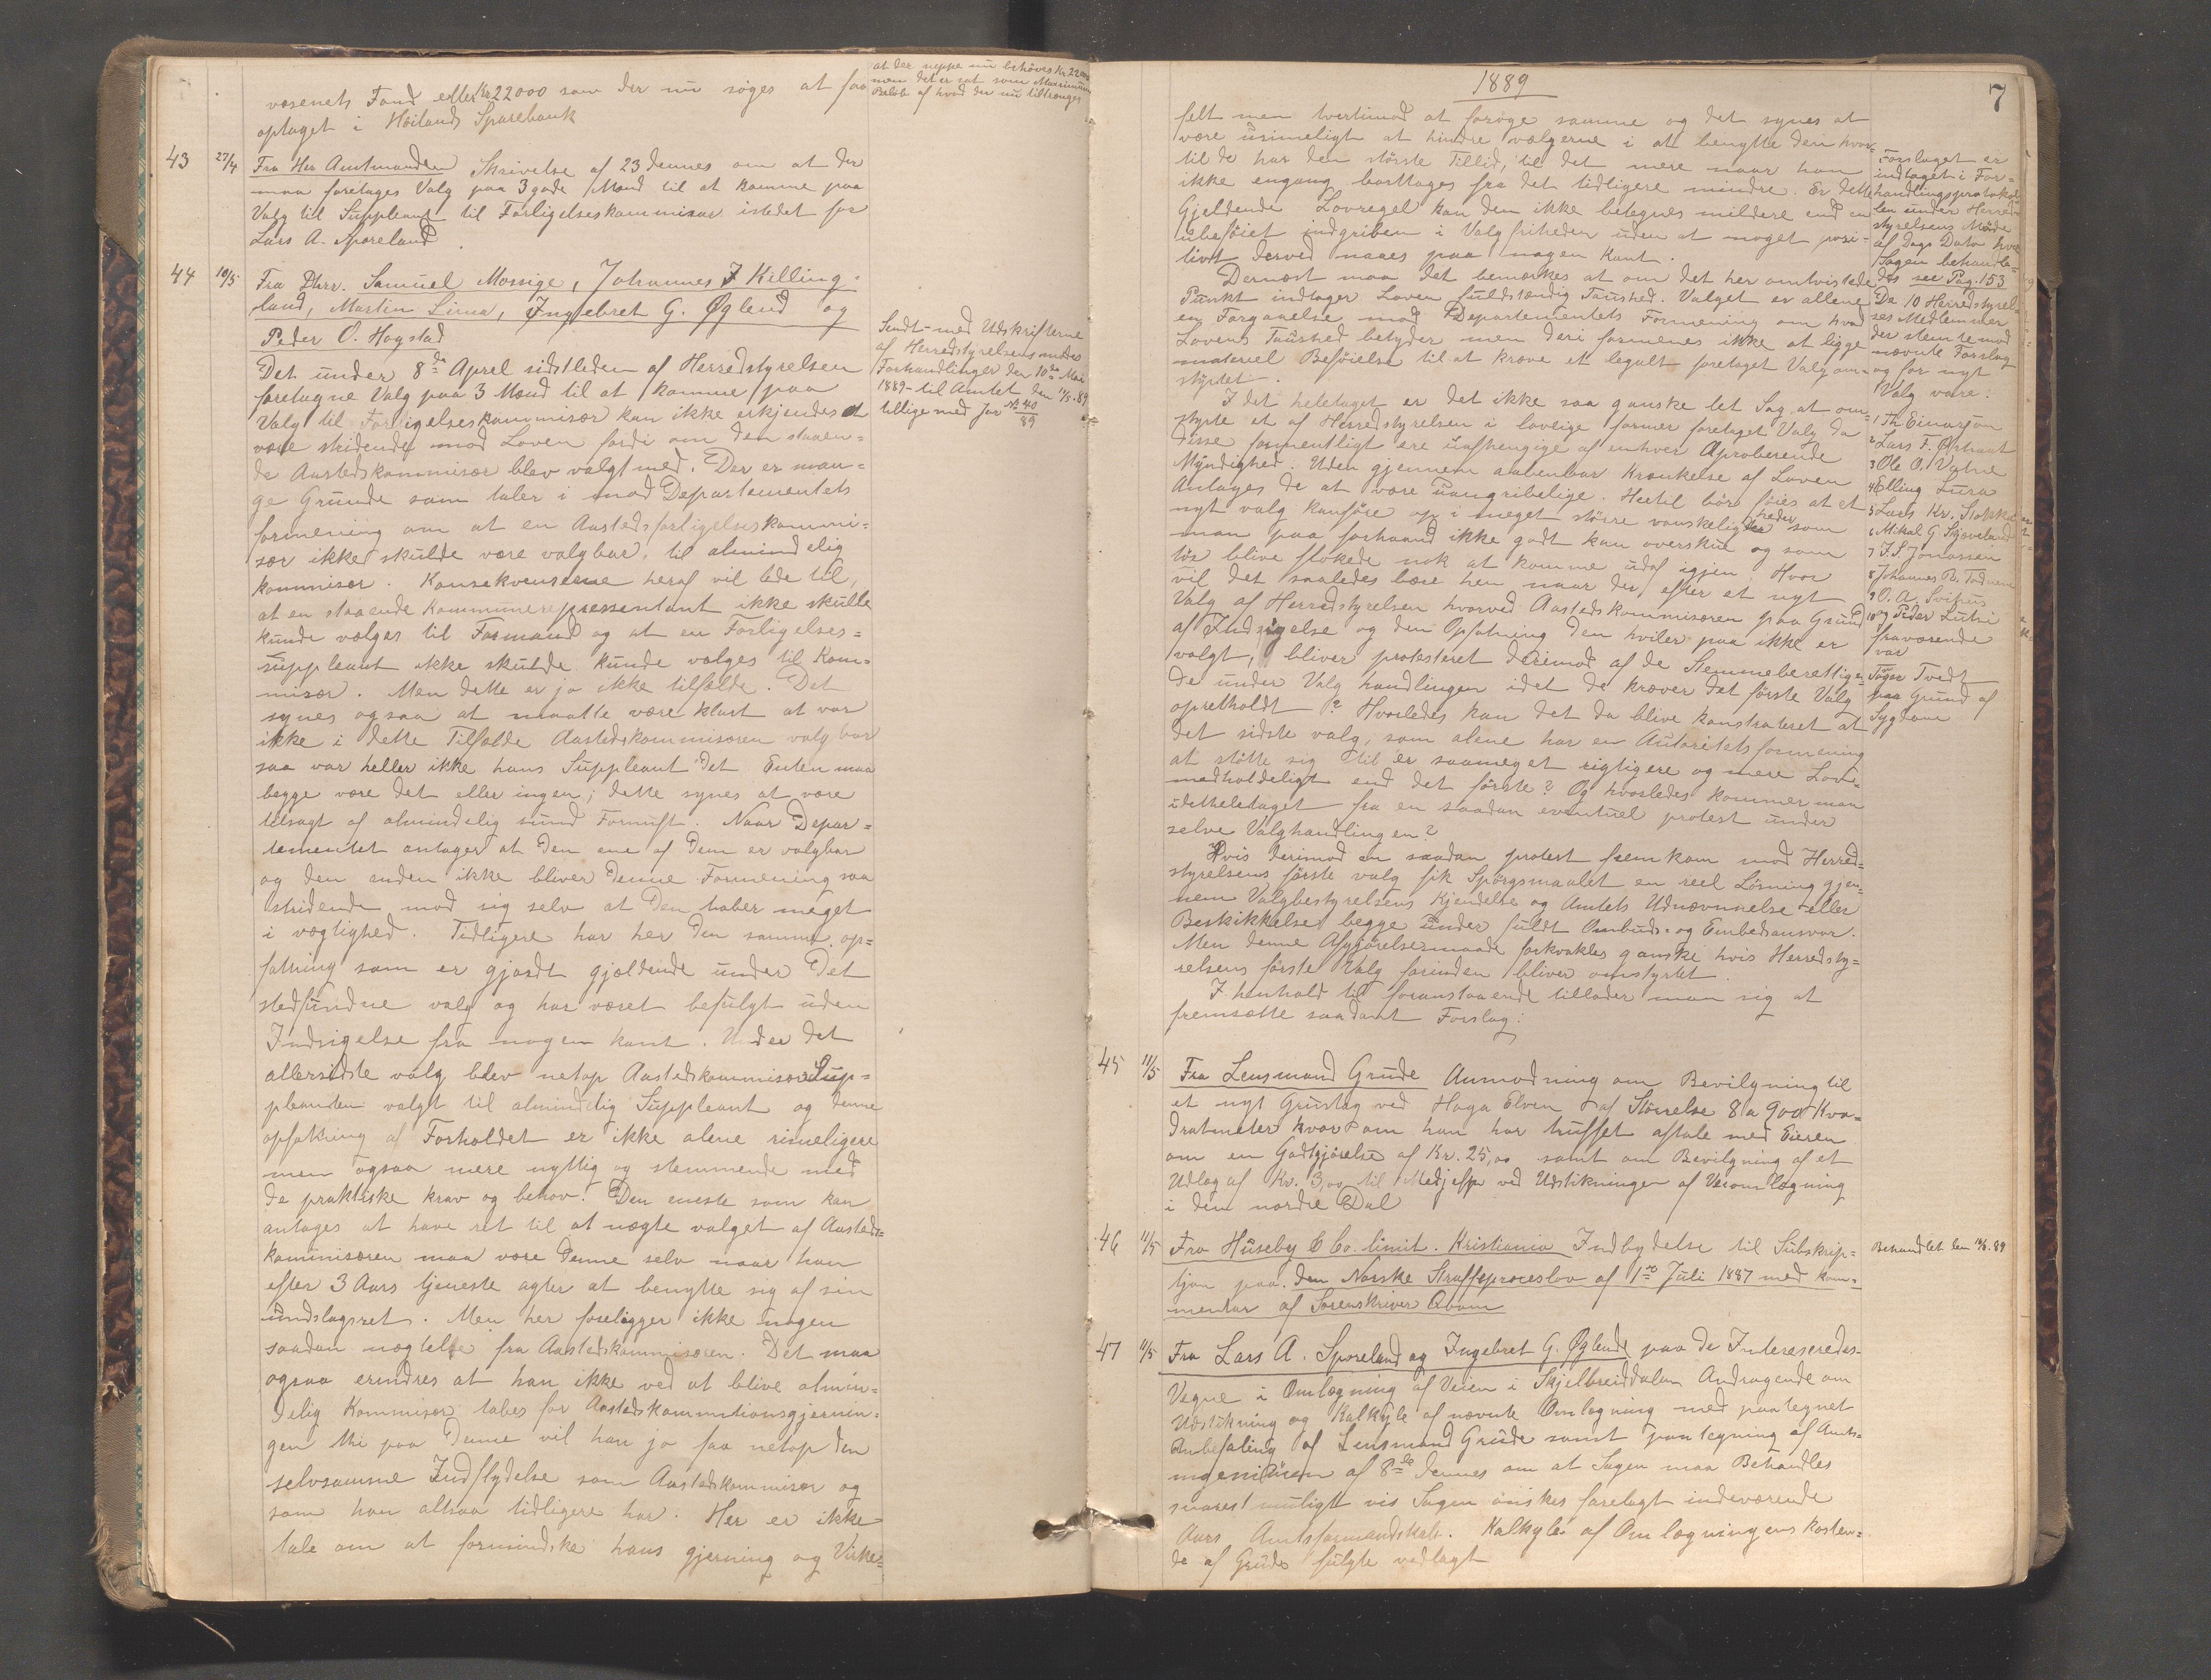 væsenets Fond eller Kr 22000 som der nu søges at faa
optaget i Høilands Sparebank
at der neppe nu behøves Kr 22000
men det er sat som Maximum
Beløb af hvad der nu tiltrænges
43 27/4 Fra Her Amtmanden Skrivelse af 23 dennes om at der
maa foretages Valg paa 3 gode Mænd til at komme paa
Valg til Suppleant til Forligelseskommisær istedet for
Lars A. Sporeland.
44 10/5 Fra Dhrr. Samuel Mossige, Johannes J Killing-
land, Martin Lima, Ingebret G. Øglend og
Peder O. Hogstad
Det under 8de Aprel sidstleden af Herredstyrelsen
foretagne Valg paa 3 Mænd til at komme paa
Valg til Forligelseskommisær kan ikke erkjendes at
være stridende mod Loven fordi om den staaen-
de Aastedskommisær blev valgt med. Der er man-
ge Grunde som taler i mod Departementets
formening om at en Aastedsforligelseskommi-
sær ikke skulde være valgbar til almindelig
kommisær. Konsekvenserne heraf vil lede til,
at en staaende Kommunerepressentant ikke skulle
kunde vælges til Formand og at en Forligelses-
suppleant ikke skulde kunde vælges til Kom-
misær. Men dette er jo ikke tilfælde. Det
synes ogsaa at maatte være klart at var
ikke i dette Tilfælde Aastedskommisæren valgbar
saa var heller ikke hans Suppleant det. Enten maa
begge være det eller ingen; dette synes at være
tilsagt af almindelig sund Fornuft. Naar Depar-
tementet antager at den ene af dem er valgbar
og den anden ikke bliver denne Formening saa
stridende mod sig selv at den taber meget
i vægtighed. Tidligere har her den samme op-
fatning som er gjordt gjældende under det
stedfundne valg og har været befulgt uden
Indsigelse fra nogen kant. Under det
allersidste valg blev netop Aastedskommisærsup-
pleanten valgt til almindelig Suppleant og denne
opfatning af Forholdet er ikke alene rimeligere
men ogsaa mere nyttig og stemmende med
de praktiske krav og behov. Den eneste som kan
antages at have ret til at nægte valget af Aasteds-
kommisæren maa være denne selv naar han
efter 3 Aars tjeneste agter at benytte sig af sin
undslagsret. Men her foreligger ikke nogen
saadan nægtelse fra Aastedskommisæren. Det maa
ogsaa erindres at han ikke ved at blive almin-
delig Kommisær tabes for Aastedskommitionsgjernin-
gen thi paa denne vil han jo faa netop den
selvsamme Indflydelse som Aastedskommisær og
som han altsaa tidligere har. Her er ikke
tale om at formindske hans gjerning og Virke-
Sendt med Udskrifterne
af Herredstyrelsens møders
Forhandlinger den 10de Mai
1889 til Amtet den 11/5.89
tillige med Jor № 40/89
1889
7
felt men tvertimod at forøge samme og det synes at
være urimeligt at hindre vælgerne i at benytte den hvor-
til de har den største Tillid, til det mere naar han
ikke engang borttages fra det tidligere mindre. Er dette
Gjeldende Lovregel kan den ikke betegnes mildere end en
ubeføiet indgriben i Valgfriheden uden at noget posi-
tivt derved naaes paa nogen Kant.
Dernæst maa det bemærkes at om det her omtvistede
Punkt indtager Loven fuldstændig Taushed. Valget er allene
en Forgaaelse mod Departementets Formening om hvad
Lovens Taushed betyder men deri formenes ikke at ligge
materiel Beføielse til at kræve et legalt foretaget Valg om-
styrtet.
I det heletaget er det ikke saa ganske let Sag at om-
styrte et af Herredstyrelsen i lovlige former foretaget Valg da
disse formentligt ere uafhengige af enhver Aproberende
Myndighed. Uden gjennem aabenbar Krænkelse af Loven
Antages de at være uangribelige. Hertil bør føies at et
nyt valg kan føre op i meget større vanskeligheder som
man paa forhaand ikke godt kan overskue og som
tør blive flokede nok at komme udaf igjen. Hvor
vil det saaledes bære hen naar der efter et nyt
Valg af Herredstyrelsen hvorved Aastedskommisæren paa Grund
af Indsigelse og den Opfatning den hviler paa ikke er
valgt, bliver protesteret derimod af de Stemmeberettige-
de under Valghandlingen idet de kræver det første Valg
opretholdt? Hvorledes kan det da blive konstrateret at
det sidste valg, som alene har en Autoritetsformening
at støtte sig til er saameget rigtigere og mere Lov-
medholdeligt end det første? Og hvorledes kommer man
udetheletaget fra en saadan eventuel protest under
selve Valghandlingen?
Hvis derimod en saadan protest fremkom mod Herred-
styrelsens første valg fik Spørgsmaalet en reel Løsning gjen-
nem Valgbestyrelsens Kjendelse og Amtets Udnævnelse eller
Beskikkelse begge under fuldt Ombuds- og Embedsansvar.
Men denne Afgjørelsesmaade forkvakles ganske hvis Herredsty-
relsens første Valg forinden bliver omstyrtet.
I henhold til foranstaaende tillader man sig at
fremsætte saadant Forslag:
Forslaget er
indtaget i For-
handlingsprotokol-
len under Herred-
styrelsens Møde
af Dags Dato hvor
Sagen behandle-
des see Pag. 153
De 10 Herredstyrel-
ses Medlemmer
der stemte mod
nævnte Forslag
og for nyt
Valg vare:
1 Th. Einarsen
2 Lars F. Østraat
3 Ole O. Vatne
4 Elling Lura
5 Lars Kr. Stokkeland
6 Mikal G Skjæveland
7 J. S. Jonassen
8 Johannes R. Todnem
9 O. A. Svihus
10 og Peder Lutsi
fraværende
var
Tøger Tvedt
paa Grund af
Sygdom
45 11/5 Fra Lensmand Grude Anmodning om Bevilgning til
et nyt Grustag ved Haga Elven af Størrelse 8 a 900 Kva-
dratmeter hvorom han har truffet aftale med Eieren
om en Godtgjørelse af Kr. 25,00 samt om Bevilgning af et
Udlæg af Kr. 3,00 til Medhjelper ved Udstikningen af Veiomlægning
i den nordre Dal
46 11/5 Fra Huseby & Co. limit. Kristiania Indbydelse til Subskrip-
tjon paa den Norske Straffeproceslov af 1ro Juli 1887 med kom-
mentar af Sorenskriver Qvam
Behandlet den 11/6.89
47 11/5 Fra Lars A. Sporeland og Ingebret G. Øglende paa de Interesseredes
Vegne i Omlægning af Veien i Skjelbreiddalen Andragende om
Udstikning og Kalkyle af nævnte Omlægning med paategnet
Anbefaling af Lensmand Grude samt paategning af Amts-
ingeniøren af 8de dennes om at Sagen maa Behandles
snarest muligt vis Sagen ønskes forelagt indeværende
Aars Amtsformandskab. Kalkyle af Omlægningens Kosten-
de af Grude fulgte vedlagt